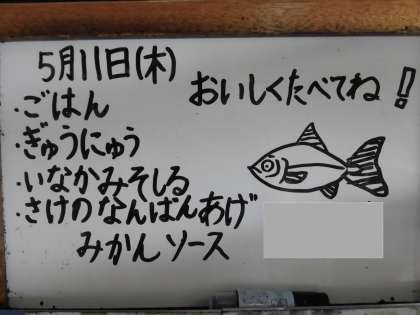 5月11日(木)
おいしくたべてね!
・ごはん
・ぎゅうにゅう
・いなかみそしる
・さけのなんばんあげ
みかんソース